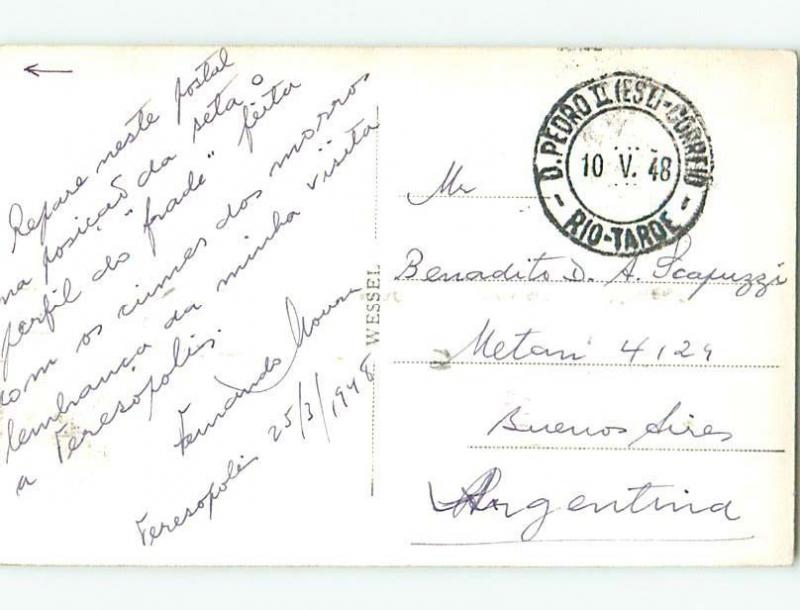 ←
Repare neste postal
na posição da seta o
perfil do "frade" feita
com os cumes dos morros
lembrança da minha visita
a Teresópolis.
Fernando Moura
Teresopolis 25/3/1948
WESSEL
D. PEDRO II (EST.)-CORREIO
10 V. 48
- RIO-TARDE -
Mr
Benadito D. A. Scapuzzi
Metan 4129
Buenos Aires
Argentina